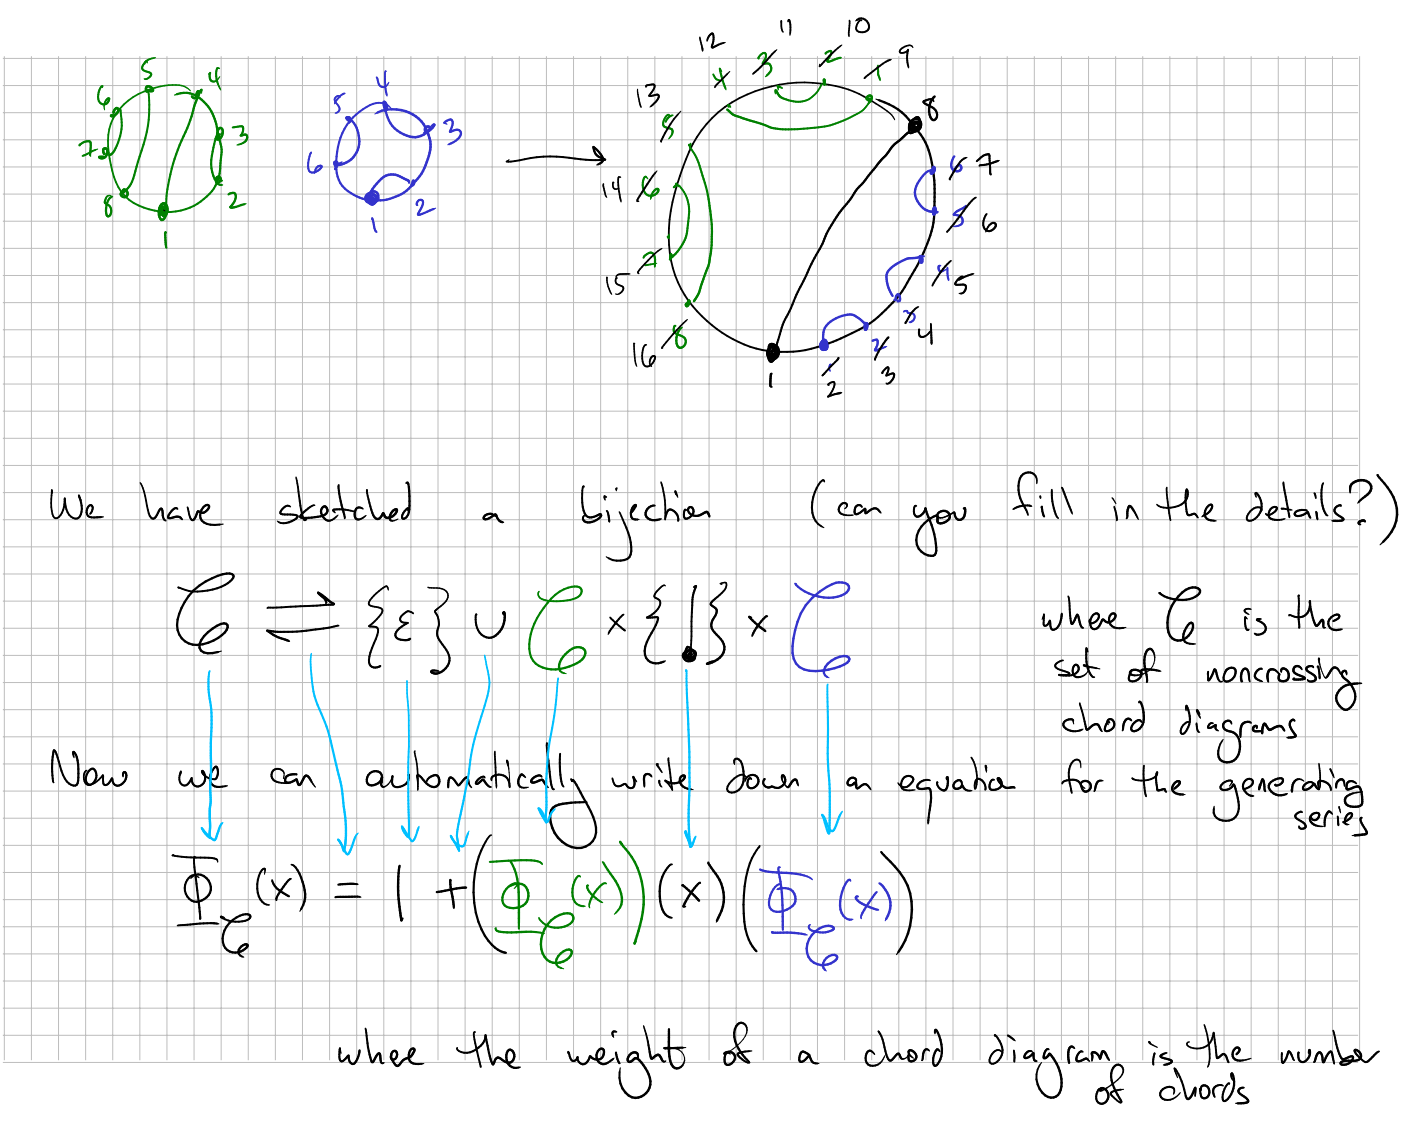 5 4 6 3 7 8 2 1
4 5 3 6 1 2
12 11 10 9
4 3 2 1
13 5 8
14 6 6 7
15 7 5 6
16 8 4 5
3 4
1 1 2 2 3
We have sketched a bijection (can you fill in the details?)
𝒞 ⇌ {ε} ∪ 𝒞 × {•} × 𝒞 where 𝒞 is the
set of noncrossing
chord diagrams
Now we can automatically write down an equation for the generating
series
Φ_𝒞(x) = 1 + (Φ_𝒞(x))(x)(Φ_𝒞(x))
where the weight of a chord diagram is the number
of chords